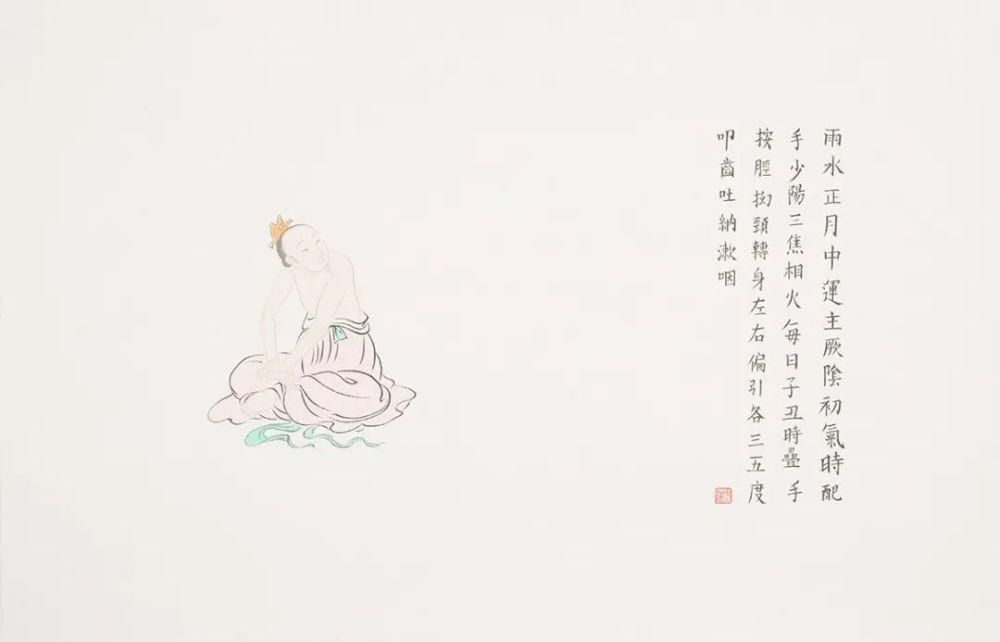 雨水正月中運主厥陰初氣時配
手少陽三焦相火每日子丑時疊手
按脛拗頸轉身左右偏引各三五度
叩齒吐納漱咽